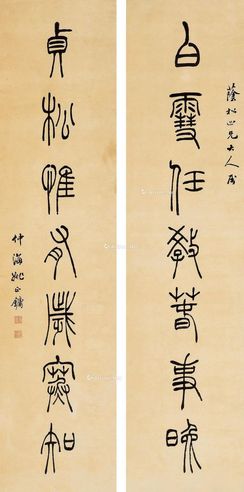 蔭松四兄大人屬
白雪任教春事晚
貞松惟有歲寒知
仲海姚正鏞